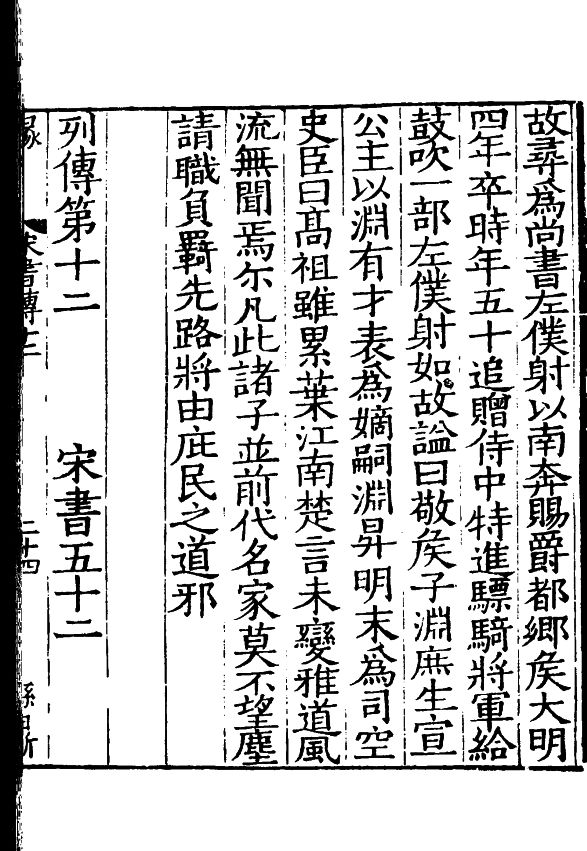 故尋爲尚書左僕射以南奔賜爵都鄉矦大明
四年卒時年五十追贈侍中特進驃騎將軍給
鼓吹一部左僕射如故謚曰敬矦子淵庶生宣
公主以淵有才表爲嫡嗣淵昇明末爲司空
史臣曰髙祖雖累葉江南楚言未變雅道風
流無聞焉尓凡此諸子並前代名家莫不望塵
請職負羈先路將由庇民之道邪
列傳第十二 宋書五十二
宋書傳十二 二十四